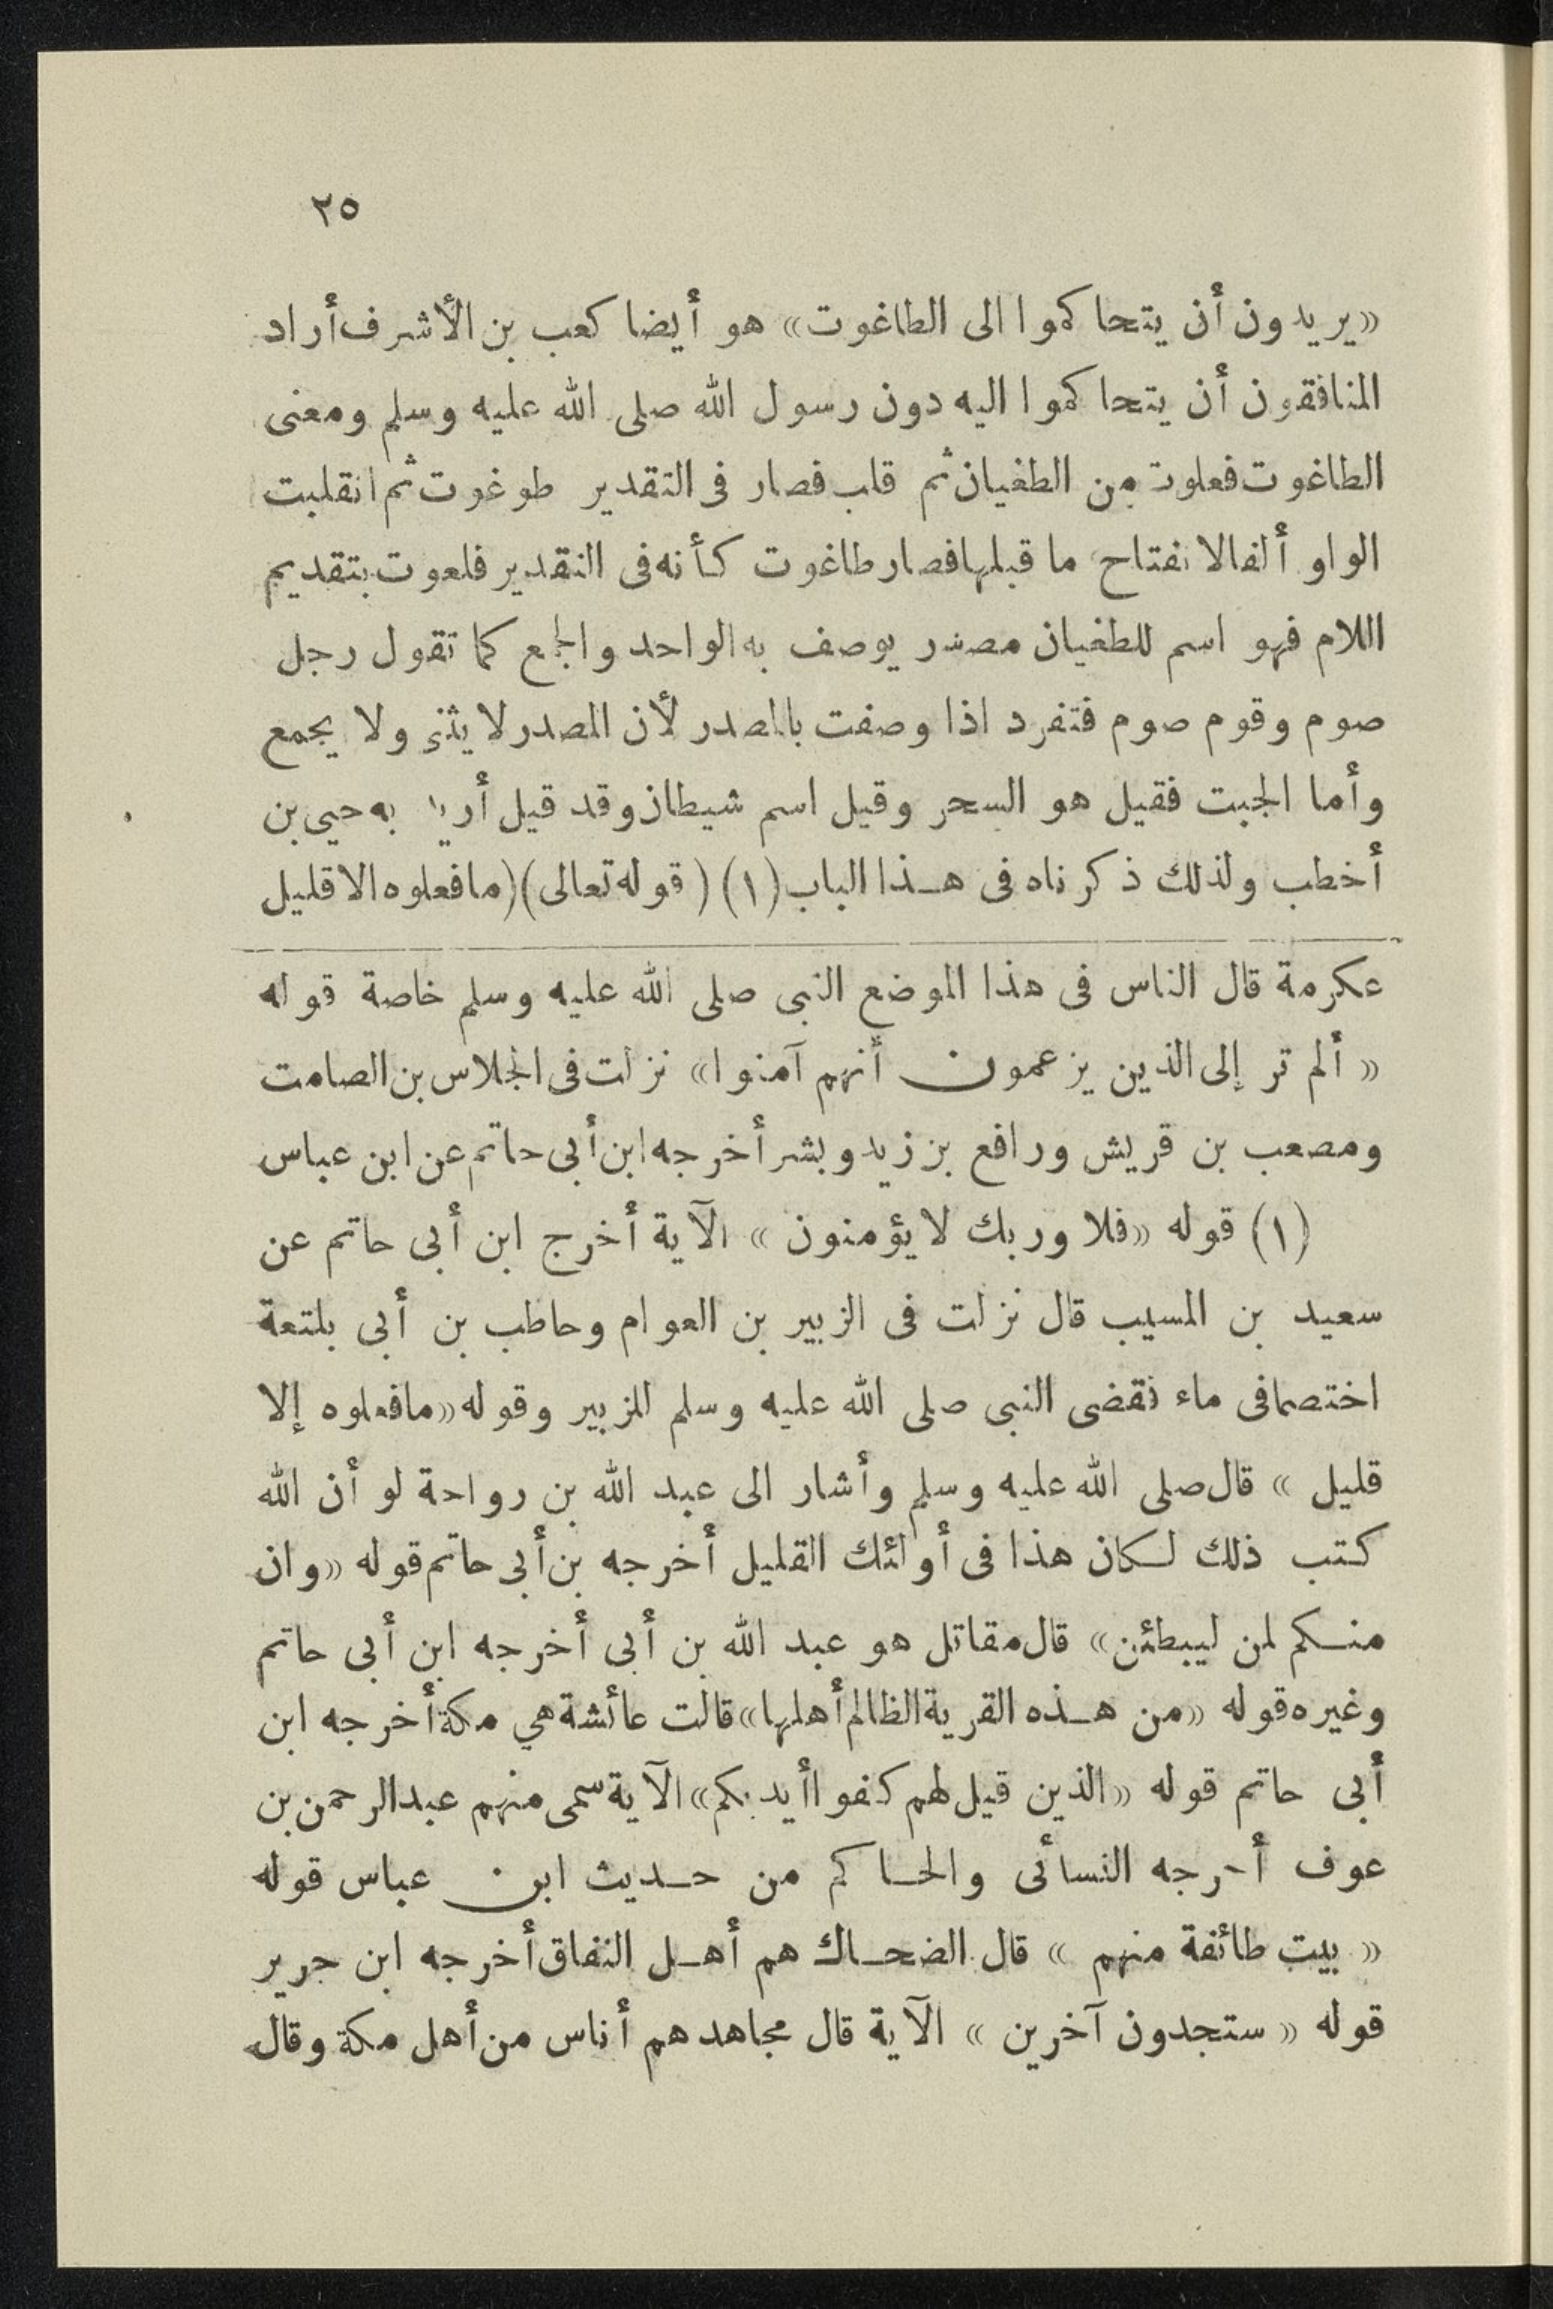 ٢٥
«يريدون أن يتحاكموا الى الطاغوت» هو أيضا كعب بن الأشرف أراد
المنافقون أن يتحاكموا اليه دون رسول الله صلى الله عليه وسلم ومعنى
الطاغوت فعلوت من الطغيان ثم قلب فصار فى التقدير طوغوت ثم انقلبت
الواو ألفا لانفتاح ما قبلها فصار طاغوت كأنه فى التقدير فلعوت بتقديم
اللام فهو اسم للطغيان مصدر يوصف به الواحد والجمع كما تقول رجل
صوم وقوم صوم فتفرد اذا وصفت بالمصدر لأن المصدر لا يثنى ولا يجمع
وأما الجبت فقيل هو السحر وقيل اسم شيطان وقد قيل أريد به حيي بن
أخطب ولذلك ذكرناه فى هـذا الباب (١) (قوله تعالى) (ما فعلوه الا قليل
عكرمة قال الناس فى هذا الموضع النبى صلى الله عليه وسلم خاصة قوله
« ألم تر إلى الذين يزعمون أنهم آمنوا» نزلت فى الجلاس بن الصامت
ومصعب بن قريش ورافع بن زيد وبشر أخرجه ابن أبى حاتم عن ابن عباس
(١) قوله «فلا وربك لا يؤمنون » الآية أخرج ابن أبى حاتم عن
سعيد بن المسيب قال نزلت فى الزبير بن العوام وحاطب بن أبى بلتعة
اختصما فى ماء فقضى النبى صلى الله عليه وسلم للزبير وقوله «ما فعلوه إلا
قليل » قال صلى الله عليه وسلم وأشار الى عبد الله بن رواحة لو أن الله
كتب ذلك لـكان هذا فى أولئك القليل أخرجه بن أبى حاتم قوله «وان
منـكم لمن ليبطئن» قال مقاتل هو عبد الله بن أبى أخرجه ابن أبى حاتم
وغيره قوله «من هـذه القرية الظالم أهلها» قالت عائشة هي مكة أخرجه ابن
أبى حاتم قوله «الذين قيل لهم كفوا أيديكم» الآية سمى منهم عبد الرحمن بن
عوف أخرجه النسائى والحـاكم من حـديث ابن عباس قوله
« بيت طائفة منهم » قال الضحـاك هم أهـل النفاق أخرجه ابن جرير
قوله « ستجدون آخرين » الآية قال مجاهد هم أناس من أهل مكة وقال